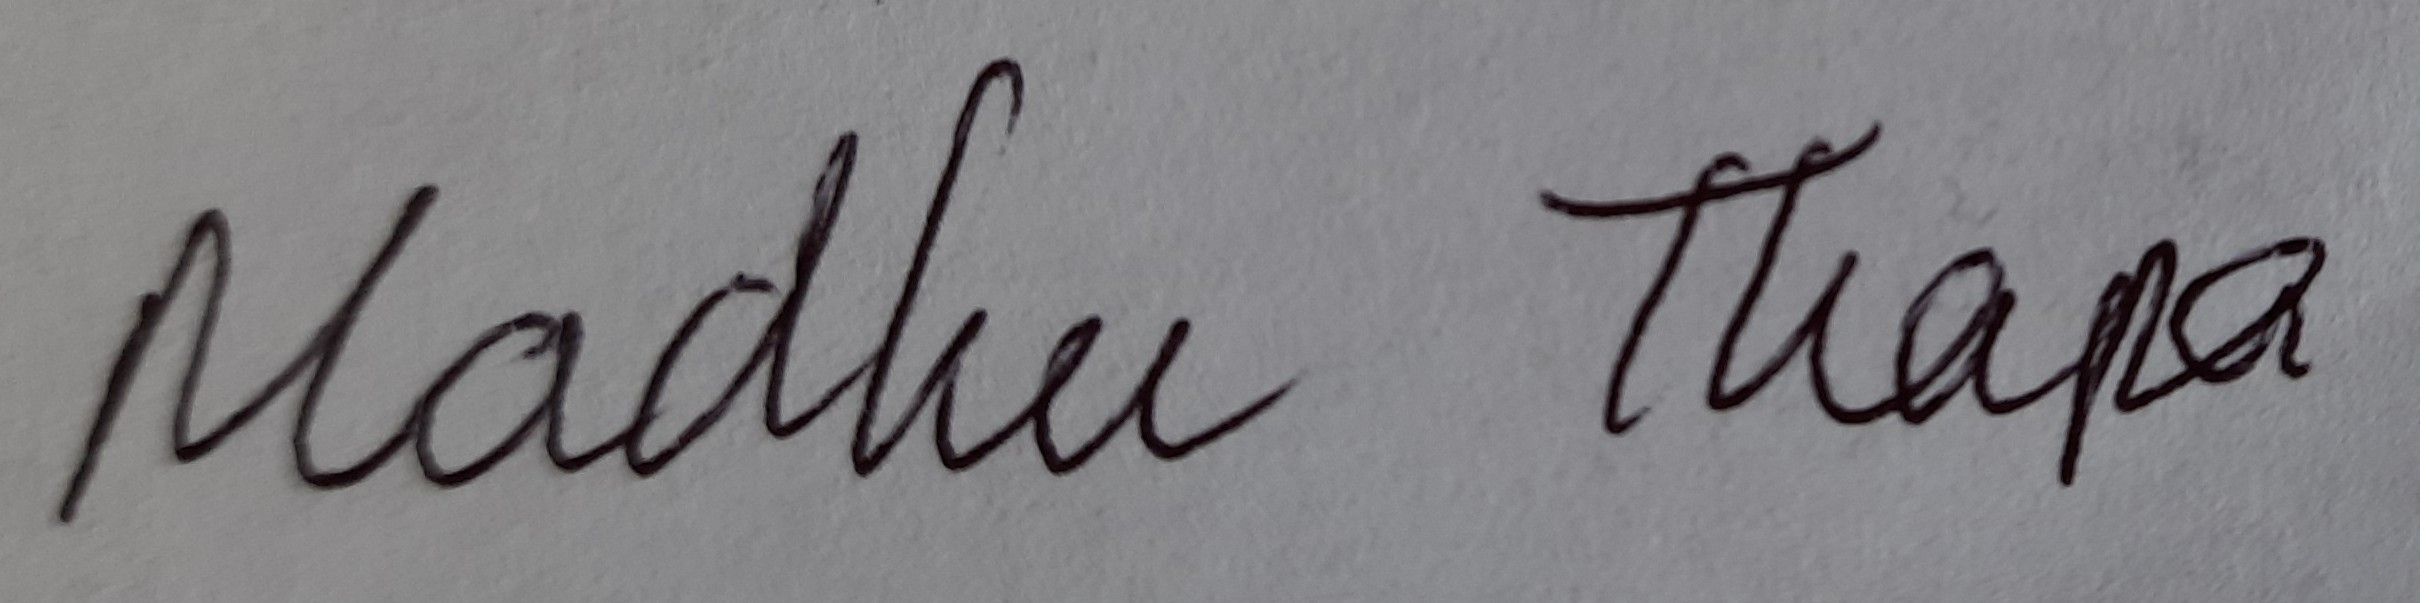 Madhu Thapa